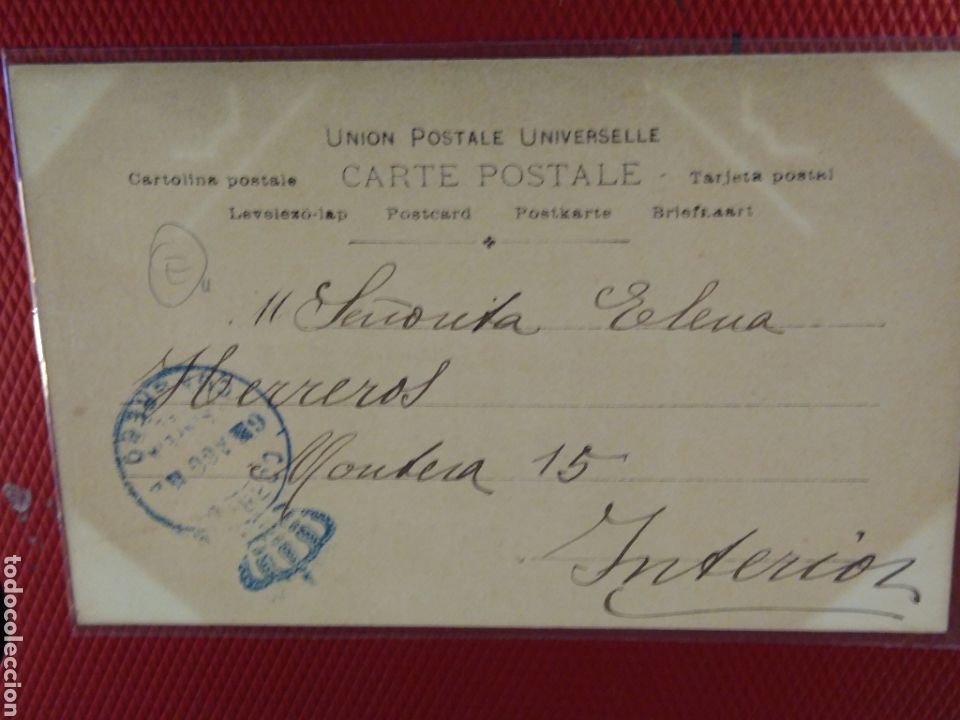 UNION POSTALE UNIVERSELLE
Cartolina postale CARTE POSTALE - Tarjeta postal
Levelező-lap Postcard Postkarte Briefkaart
E
11 Señorita Elena
Herreros
Montera 15
Interior
todocoleccion